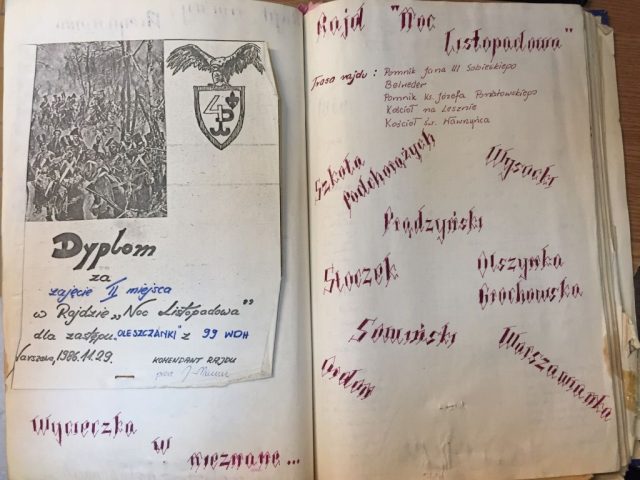 Dyplom
za
zajęcie II miejsca
w Rajdzie „Noc Listopadowa”
dla zastępu „OLESZCZANKI” z 99 WDH
Warszawa, 1986.11.29.
KOMENDANT RAJDU
Wycieczka
w
nieznane...
Rajd "Noc
Listopadowa"
Trasa rajdu : Pomnik Jana III Sobieskiego
Belweder
Pomnik Ks. Józefa Poniatowskiego
Kościół na Lesznie
Kościół św. Wawrzyńca
Szkoła
podchorążych
Wysocki
Prądzyński
Stoczek
Olszynka
Grochowska
Sowiński
Warszawianka
Ordon